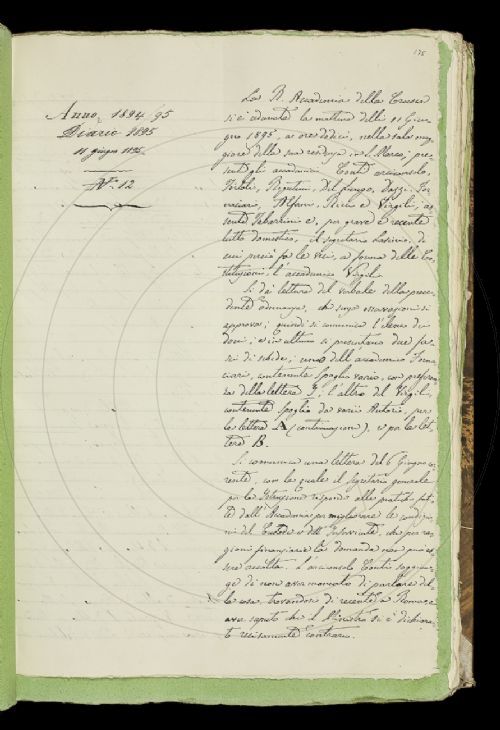 175
Anno 1894/95
Diario 1895
11 giugno 1895
N.° 12
La R. Accademia della Crusca
si è adunata la mattina delli 11 Giu-
gno 1895, a ore dodici, nella sala mag-
giore della sua residenza in S. Marco; pre-
senti gli accademici Conti arciconsolo,
Tortoli, Rigutini, Del Lungo, Dazzi, For-
naciari, Alfani, Ricci e Virgilii; as-
sente Tabarrini e, per grave e recente
lutto domestico, il segretario, di
cui perciò fa le veci, a forma delle Co-
stituzioni, l'accademico Virgilii.
Si dà lettura del verbale della prece-
dente adunanza, che senza osservazioni si
approva; quindi si comunica l'elenco dei
doni; e in ultimo si presentano due fas-
ci di schede; uno dell'accademico Forna-
ciari, contenente spoglio vario, con preferen-
za della lettera I, l'altro del Virgilii,
contenente spoglio da varii Autori, per
la lettera A (continuazione), e per la let-
tera B.
Si comunica una lettera del 6 Giugno cor-
rente, con la quale il segretario generale
per la Istruzione risponde alle pratiche fat-
te dall'Accademia per migliorare le condizio-
ni del Custode e dell'Inserviente, che per ra-
gioni finanziarie la domanda non può es-
sere accolta. L'arciconsolo Conti soggiun-
ge di non aver mancato di parlare del-
la cosa, trovandosi di recente a Roma, e
aver saputo che il Ministro si è dichiara-
to recisamente contrario.